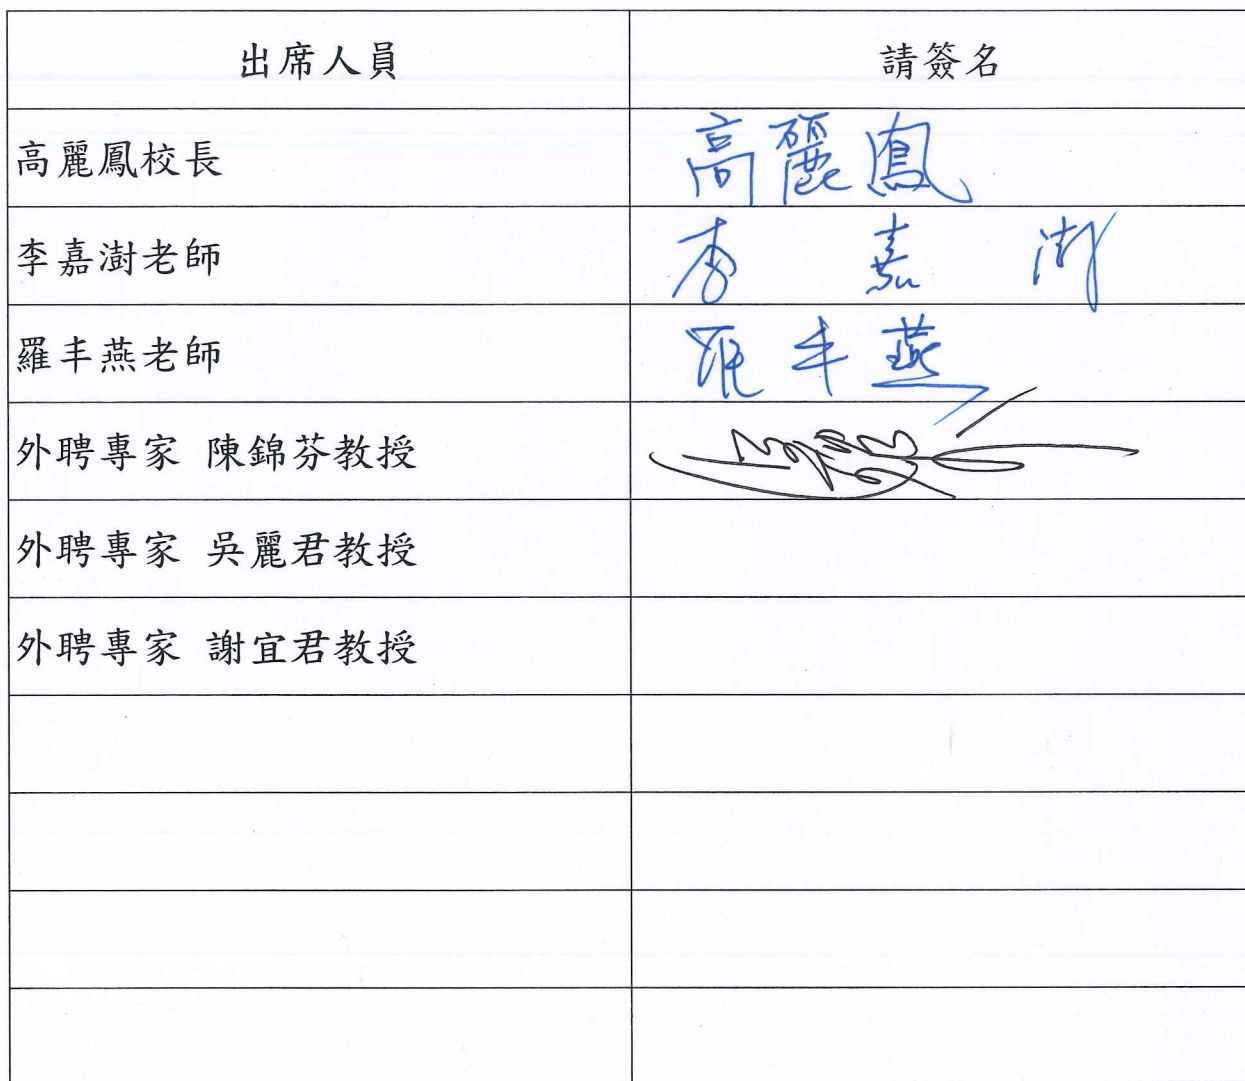 出席人員 請簽名
高麗鳳校長 高麗鳳
李嘉澍老師 李嘉澍
羅丰燕老師 羅丰燕
外聘專家 陳錦芬教授
外聘專家 吳麗君教授
外聘專家 謝宜君教授